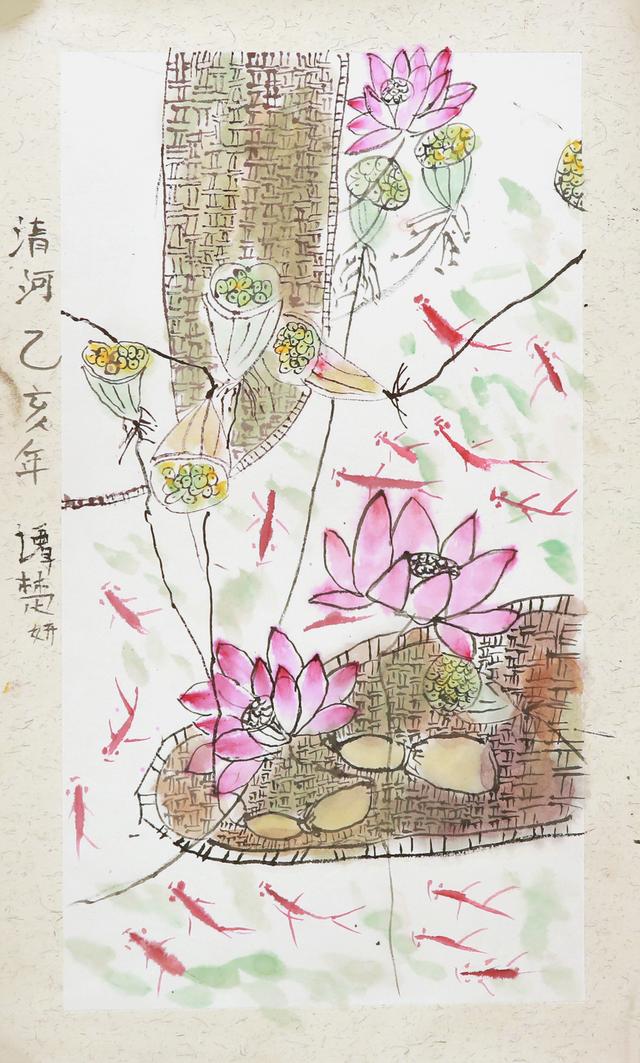 清河乙亥年谭楚妍